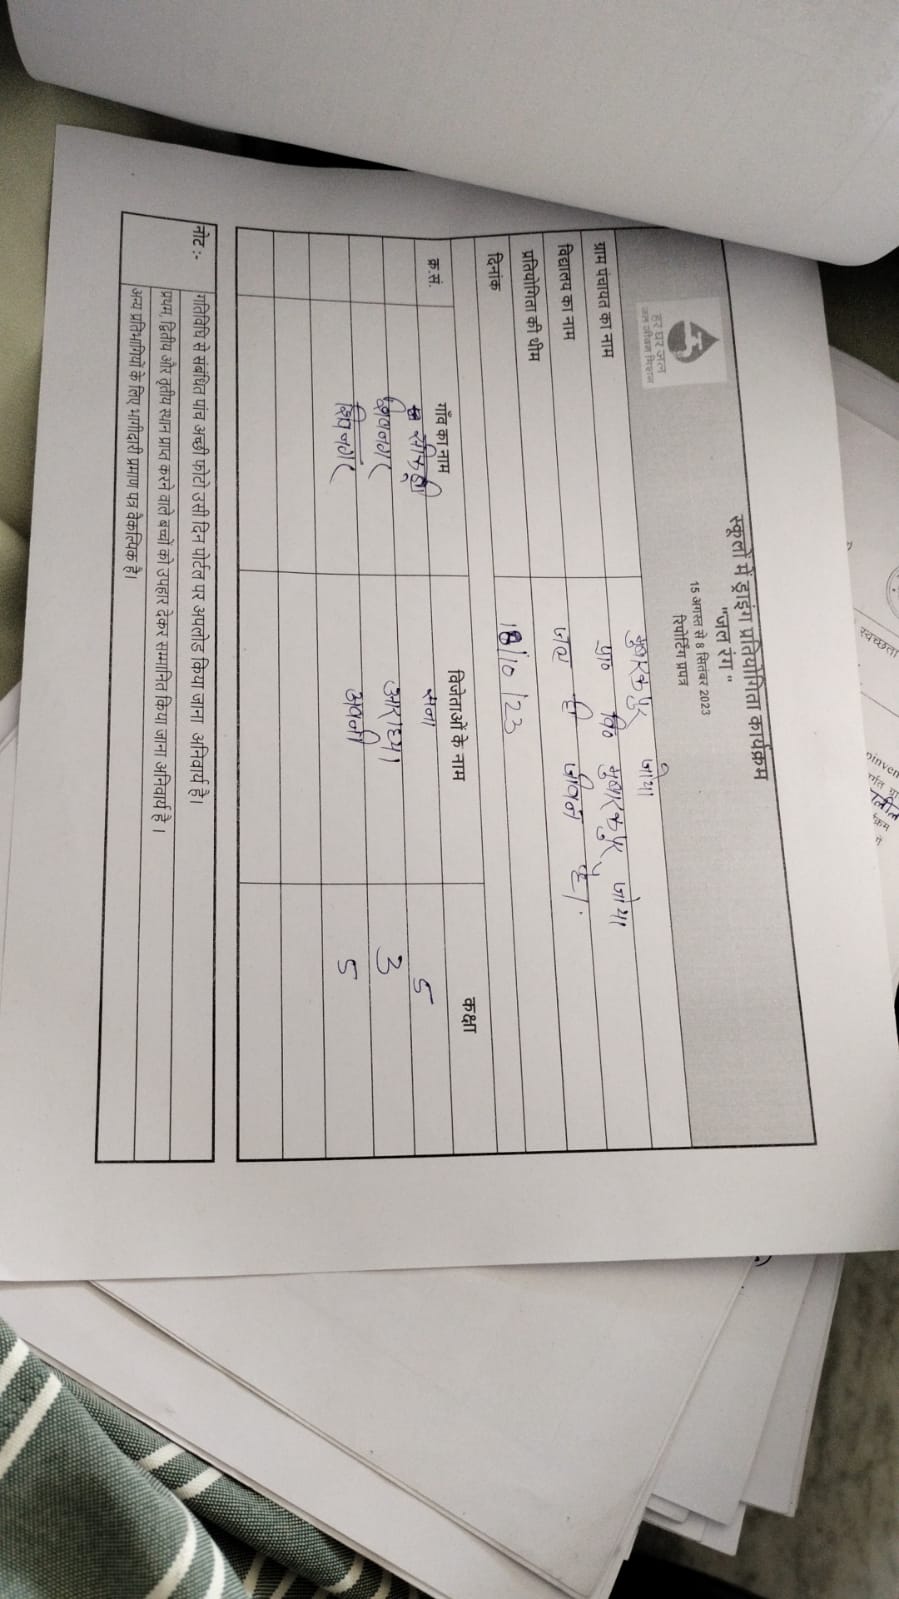 स्कूलों में ड्राइंग प्रतियोगिता कार्यक्रम
"जल रंग"
15 अगस्त से 8 सितंबर 2023
रिपोर्टिंग प्रपत्र
हर घर जल
जल जीवन मिशन
ग्राम पंचायत का नाम मुबारकपुर जोया
विद्यालय का नाम प्रा० वि० मुबारकपुर जोया
प्रतियोगिता की थीम जल ही जीवन है।
दिनांक 18/10/23
क्र.सं. गाँव का नाम विजेताओं के नाम कक्षा
सना 5
शिवनगर आराध्या 3
शिवनगर अवनी 5
नोट :- गतिविधि से संबंधित पांच अच्छी फोटो उसी दिन पोर्टल पर अपलोड किया जाना अनिवार्य है।
प्रथम, द्वितीय और तृतीय स्थान प्राप्त करने वाले बच्चों को उपहार देकर सम्मानित किया जाना अनिवार्य है।
अन्य प्रतिभागियों के लिए भागीदारी प्रमाण पत्र वैकल्पिक है।
स्वच्छता